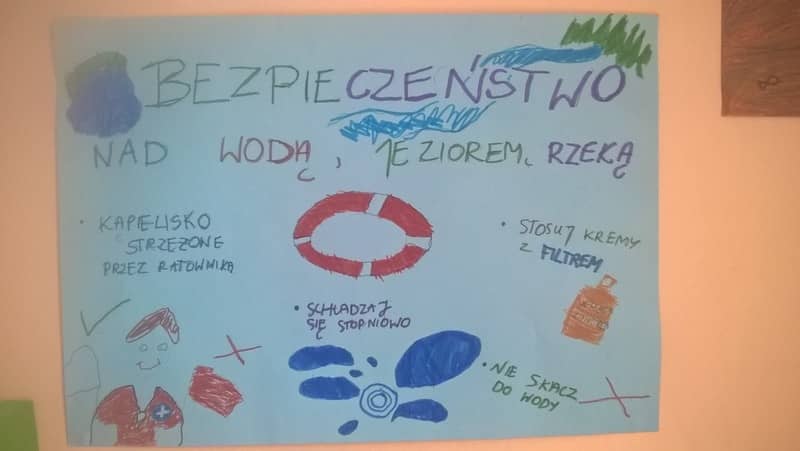 BEZPIECZEŃSTWO
NAD WODĄ, JEZIOREM, RZEKĄ
• KĄPIELISKO
STRZEŻONE
PRZEZ RATOWNIKA
• SCHŁADZAJ
SIĘ STOPNIOWO
• STOSUJ KREMY
Z FILTREM
• NIE SKACZ
DO WODY